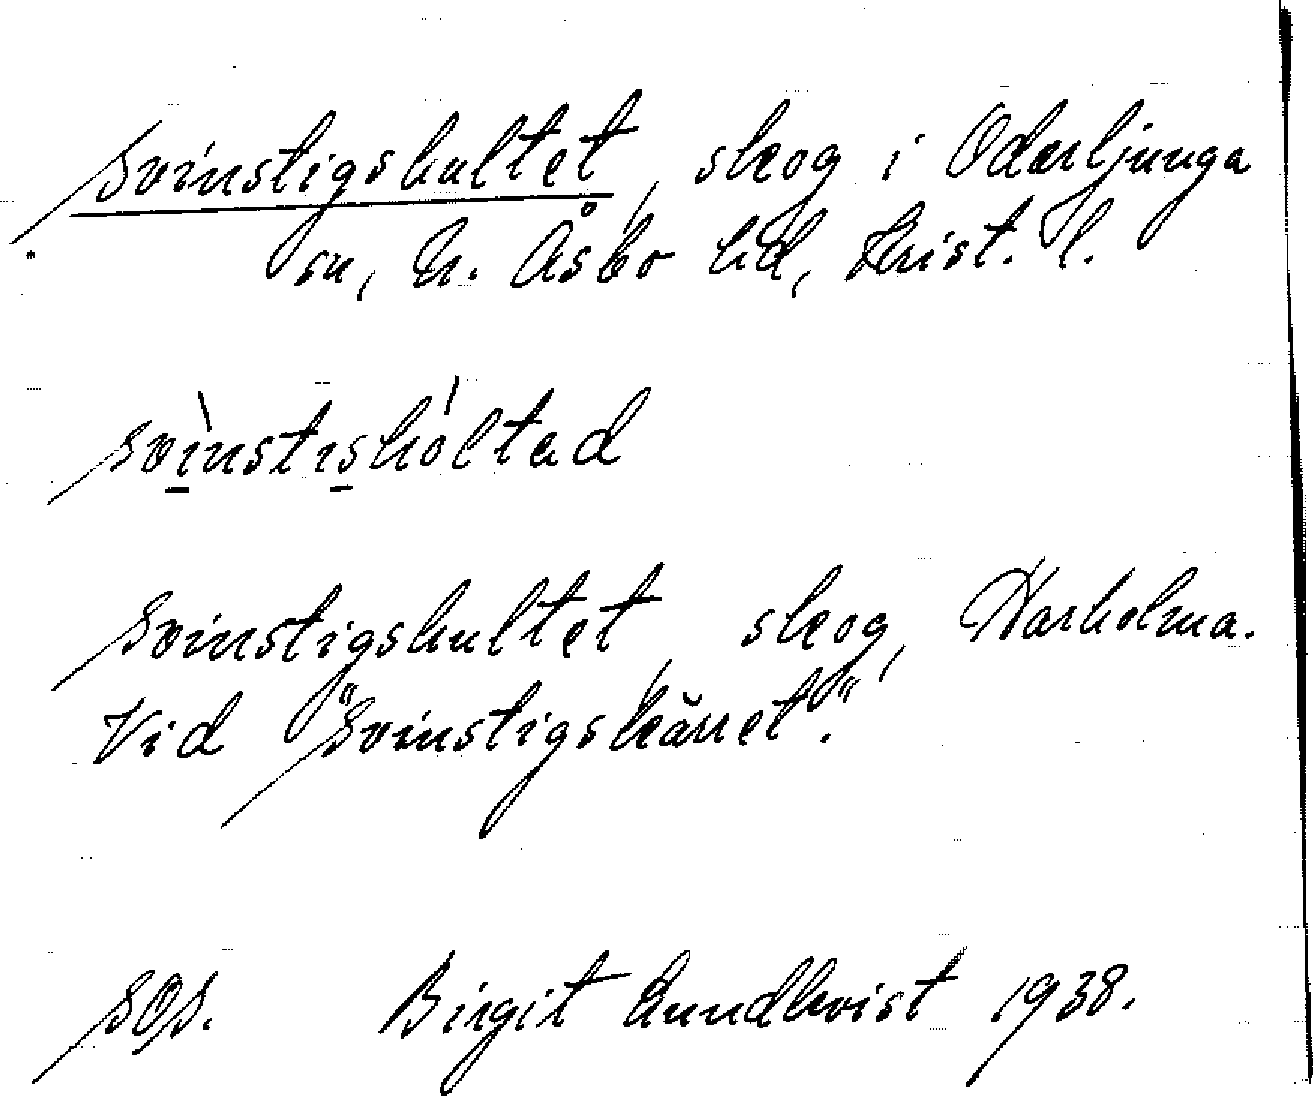 Svinstigshultet, skog i Oderljunga
sn, N. Åsbo hd, Krist. l.
svìnstishóltad
Svinstigshultet, skog, Harholma.
Vid "Svinstigskärret".
SOS. Birgit Lundkvist 1938.